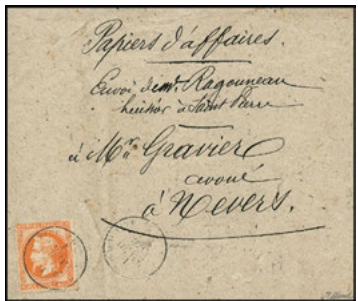 Papiers d'affaires.
Envoi de Mr. Ragouneau
huissier à Saint Pierre
à Mr. Gravier
avoué
à Nevers.